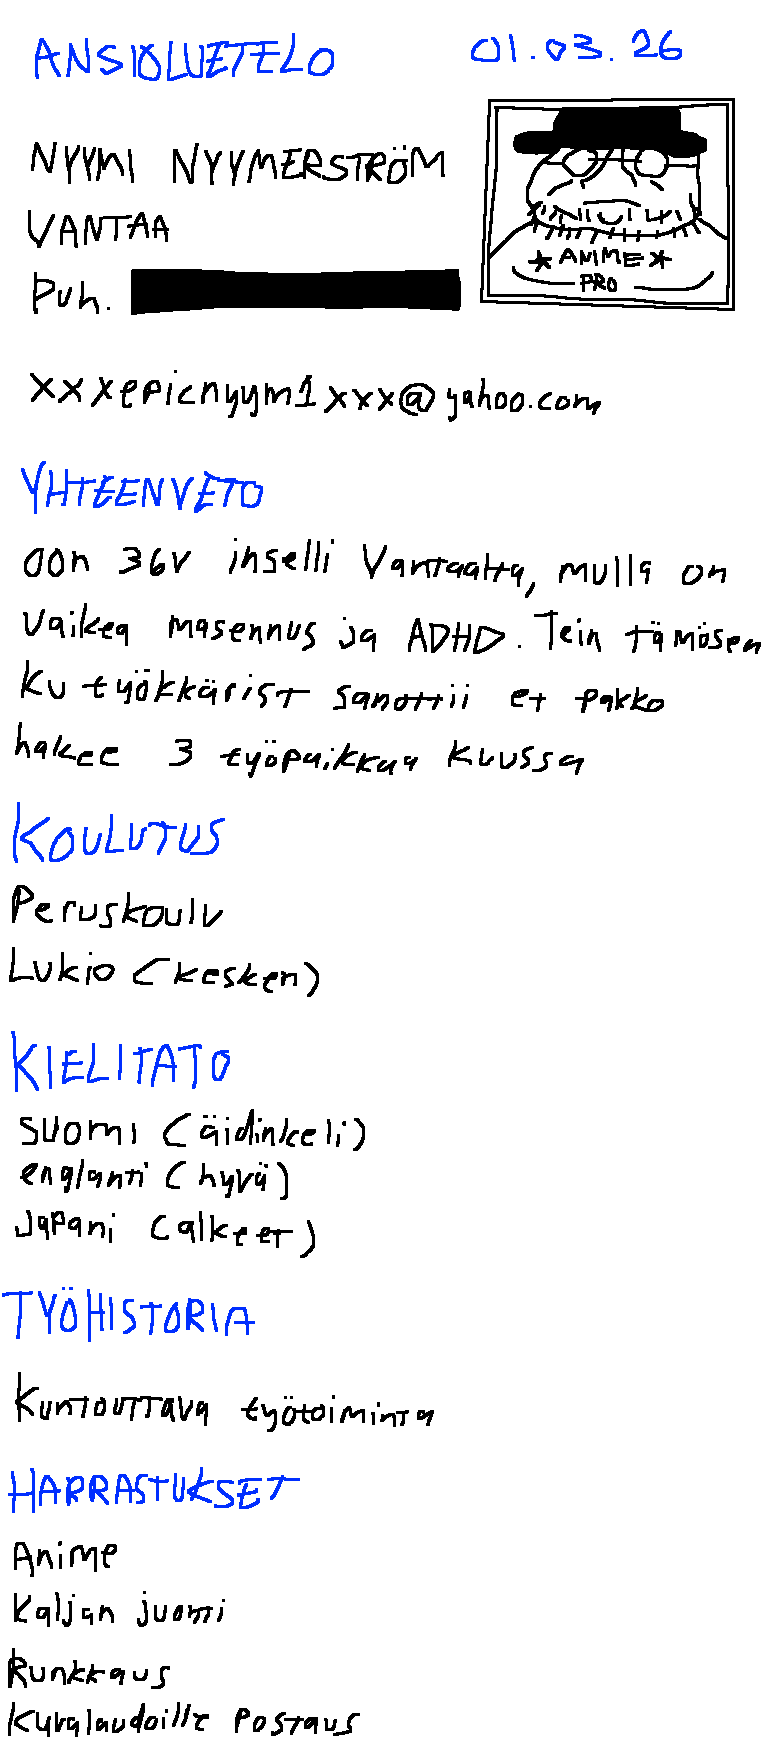 ANSIOLUETELO 01.03.26
NYYMI NYYMERSTRÖM
VANTAA
Puh.
* ANIME *
PRO
xxxepicnyym1xxx@yahoo.com
YHTEENVETO
oon 36v inselli Vantaalta, mulla on
vaikea masennus ja ADHD. Tein tämösen
ku työkkärist sanottii et pakko
hakee 3 työpaikkaa kuussa
KOULUTUS
Peruskoulu
Lukio (kesken)
KIELITATO
suomi (äidinkeli)
englanti (hyvä)
Japani (alkeet)
TYÖHISTORIA
Kuntouttava työtoiminta
HARRASTUKSET
Anime
Kaljan juomi
Runkkaus
Kuvalaudoille postaus